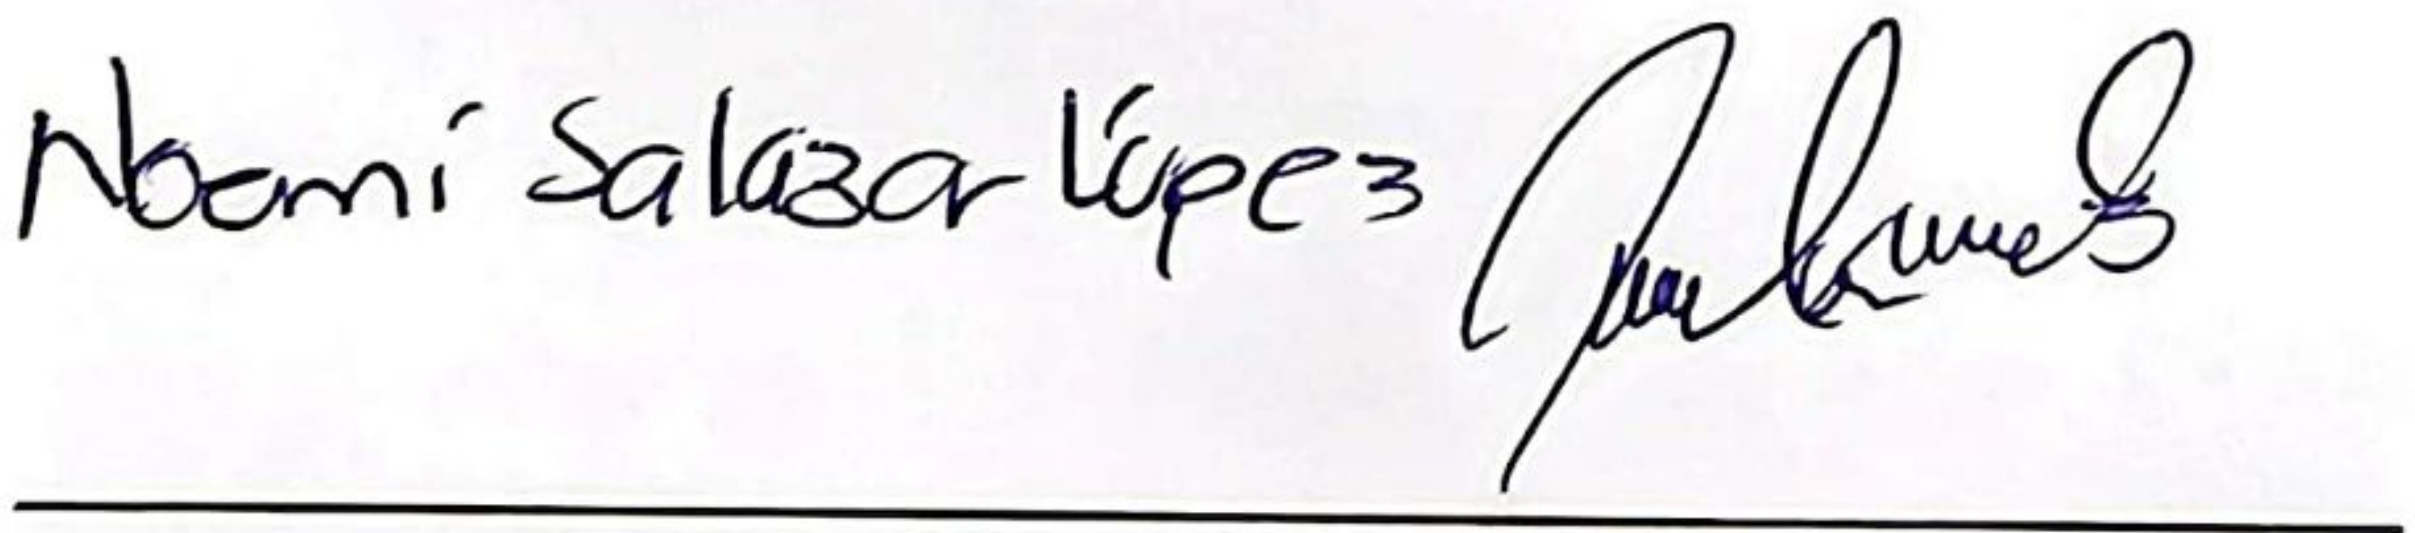 Noemí Salazar López